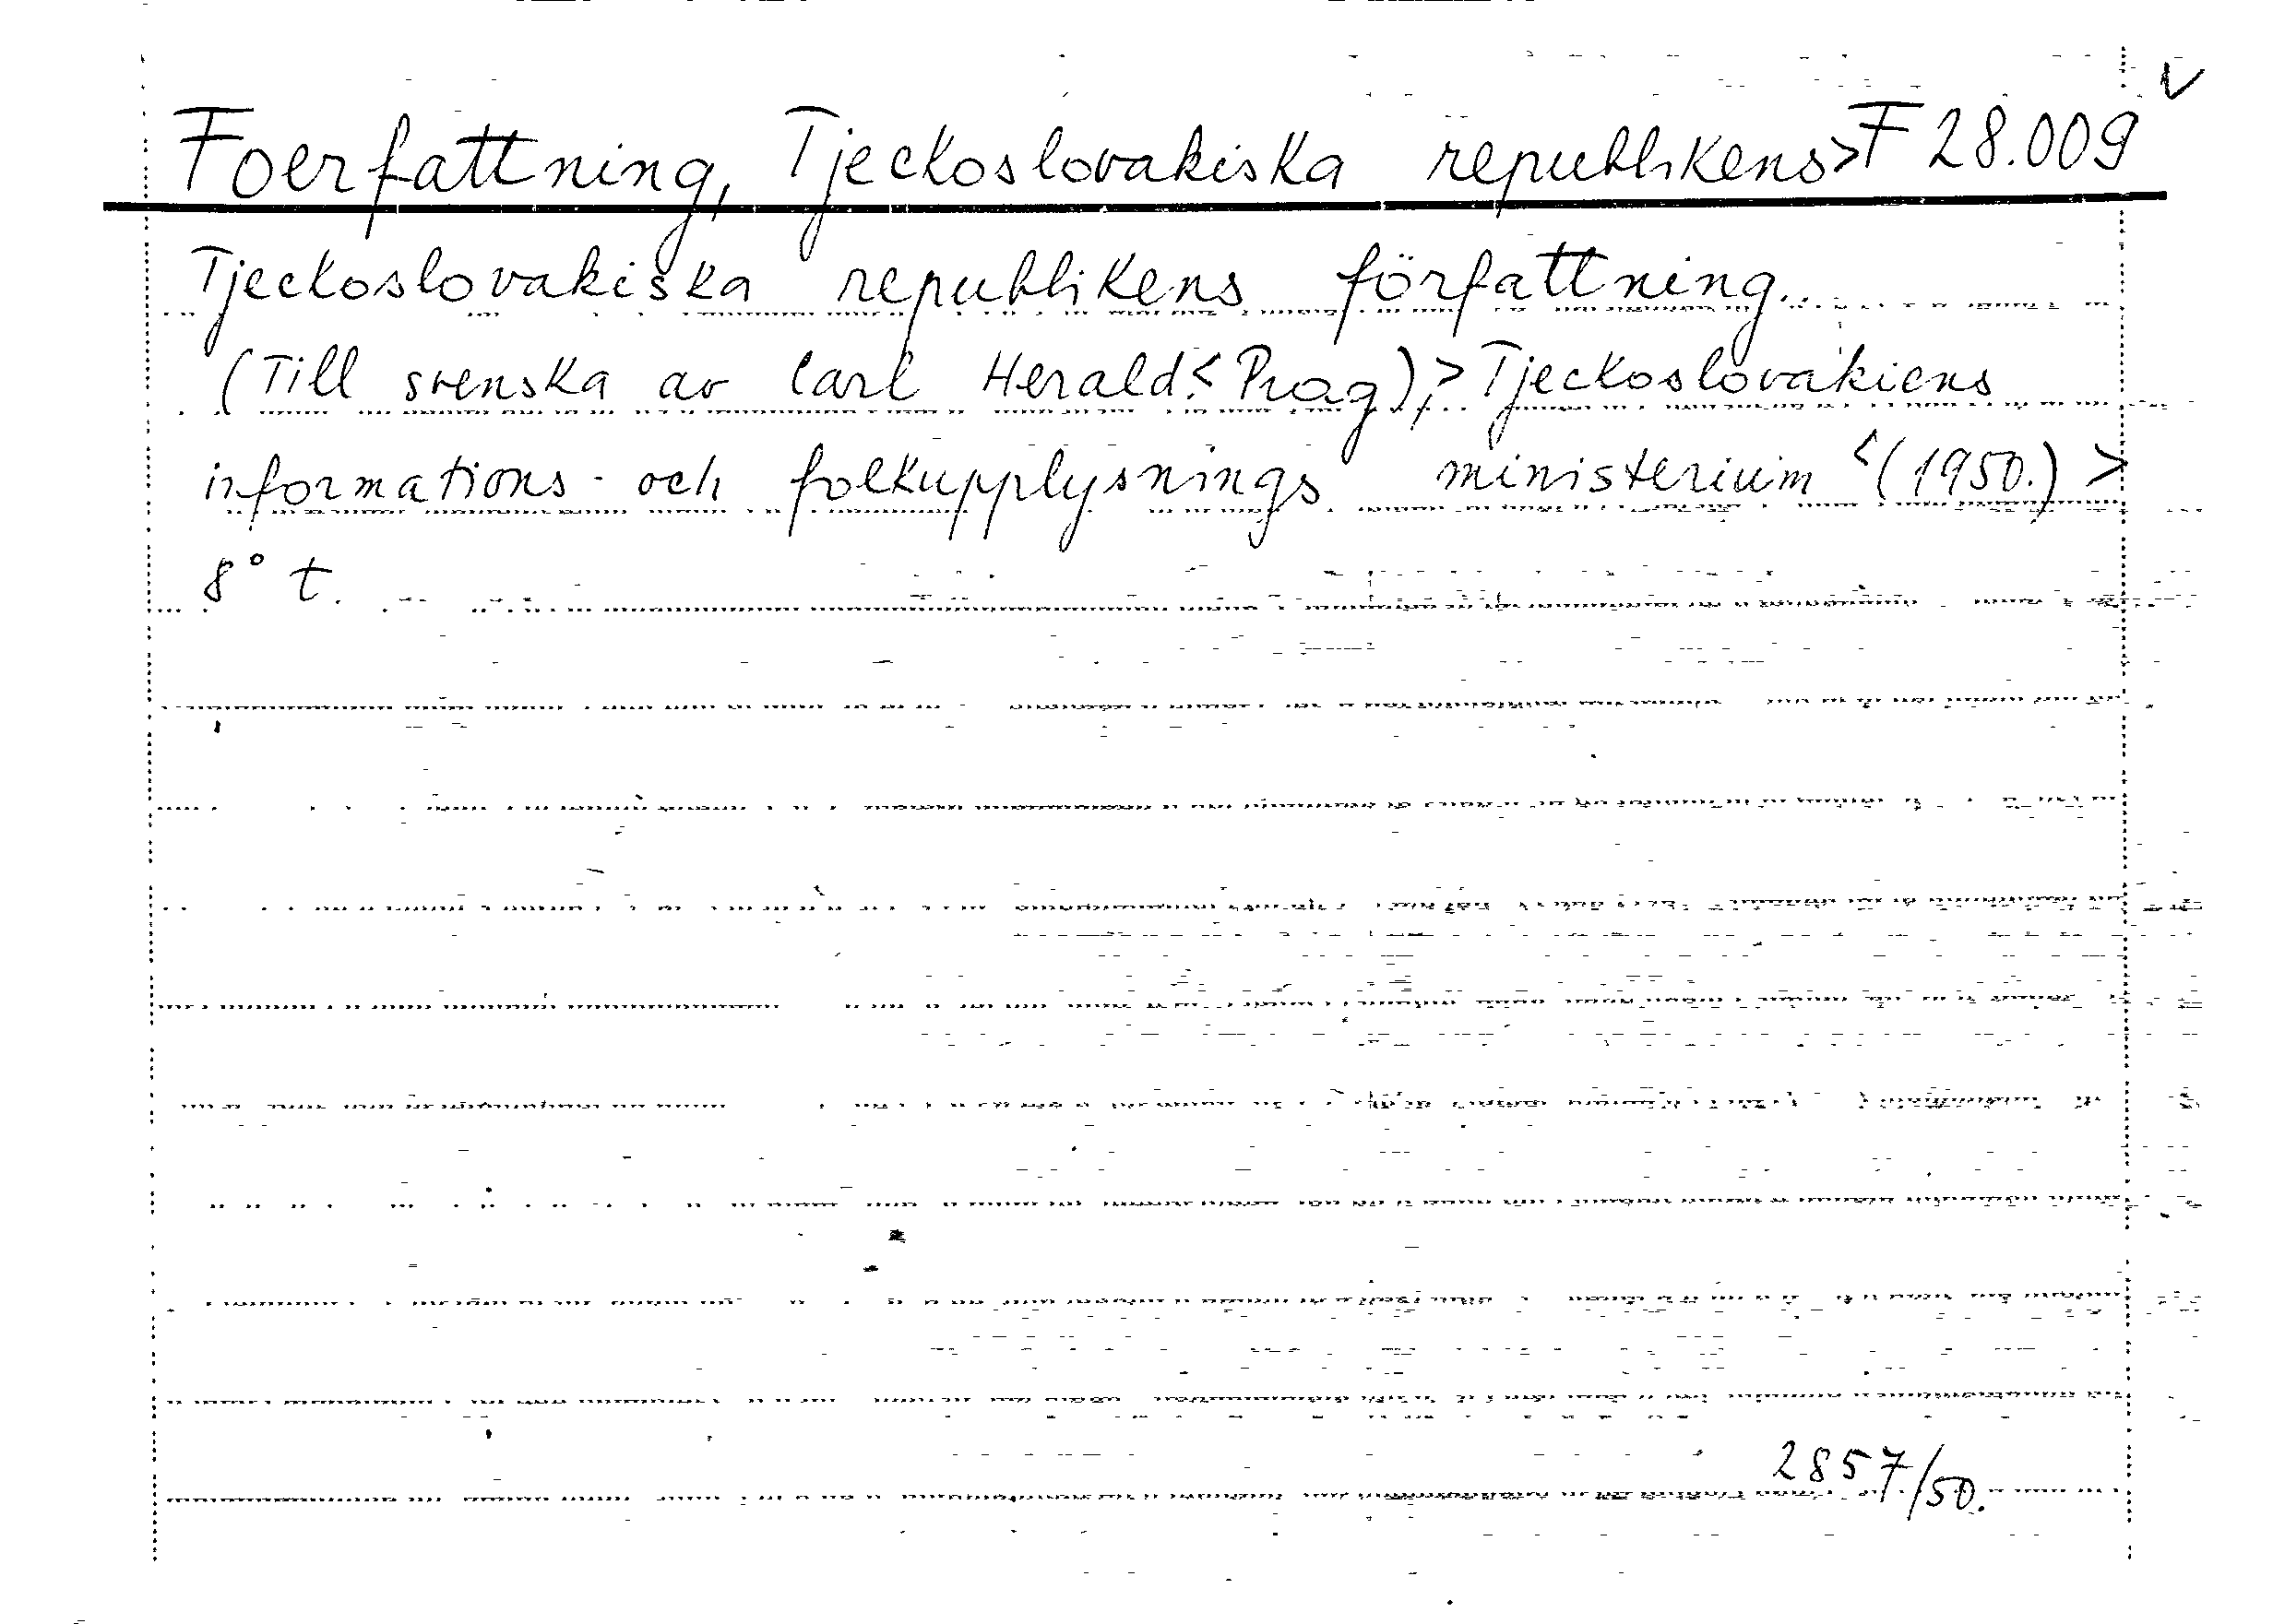 Foerfattning, Tjeckoslovakiska republikens> F 28.009 v
Tjeckoslovakiska republikens författning.
(Till svenska av Carl Herald.< Prag),> Tjeckoslovakiens
informations- och folkupplysnings ministerium <(1950.)>
8° t.
2857/50.